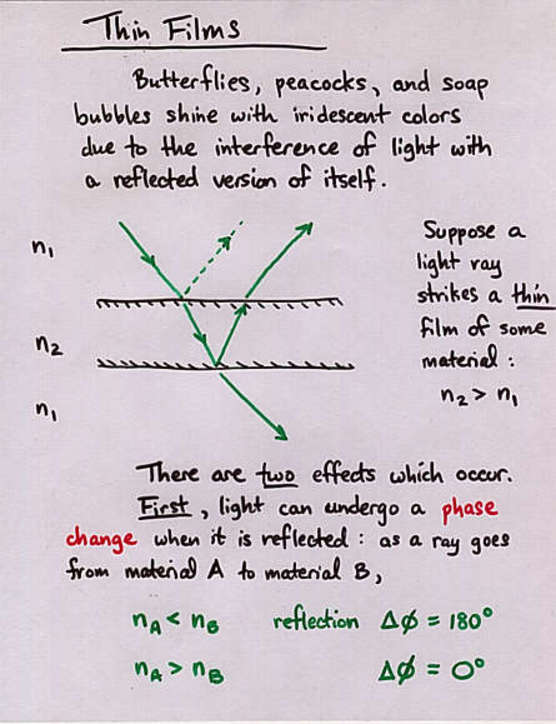 Thin Films
Butterflies, peacocks, and soap
bubbles shine with iridescent colors
due to the interference of light with
a reflected version of itself.
n₁
n₂
n₁
Suppose a
light ray
strikes a thin
film of some
material :
n₂ > n₁
There are two effects which occur.
First, light can undergo a phase
change when it is reflected : as a ray goes
from material A to material B,
n_A < n_B reflection Δϕ = 180°
n_A > n_B Δϕ = 0°